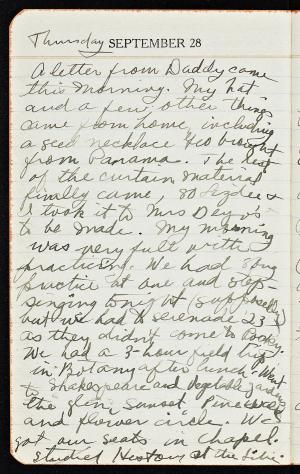 Thursday SEPTEMBER 28
A letter from Daddy came
this morning. My hat
and a few other things
came from home, including
a seed necklace brought
from Panama. The rest
of the curtain material
finally came, so &
I took it to Mrs Deyos
to be made. My morning
was very full with
practicing. We had song
practice at one and step-
singing tonight (supposedly)
but we had to serenade 23
as they didn't come to
We had a 3-hour field trip
in Botany after lunch. Went
to Shakespeare and Vegetable gardens
the glen, Sunset, Pine walk
and flower circle. We
got our seats in Chapel.
Studied History at the Libe.